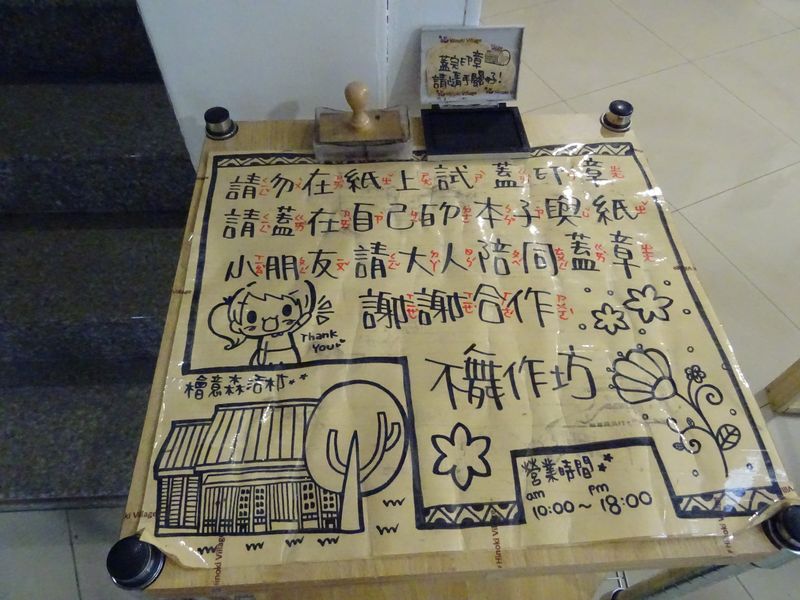 Hinoki Village
蓋完印章
請隨手關好!
請勿在紙上試蓋印章
請蓋在自己的本子與紙
小朋友請大人陪同蓋章
謝謝合作
Thank
You
不舞作坊
檜意森活村
營業時間
am pm
10:00～18:00
Hinoki Village